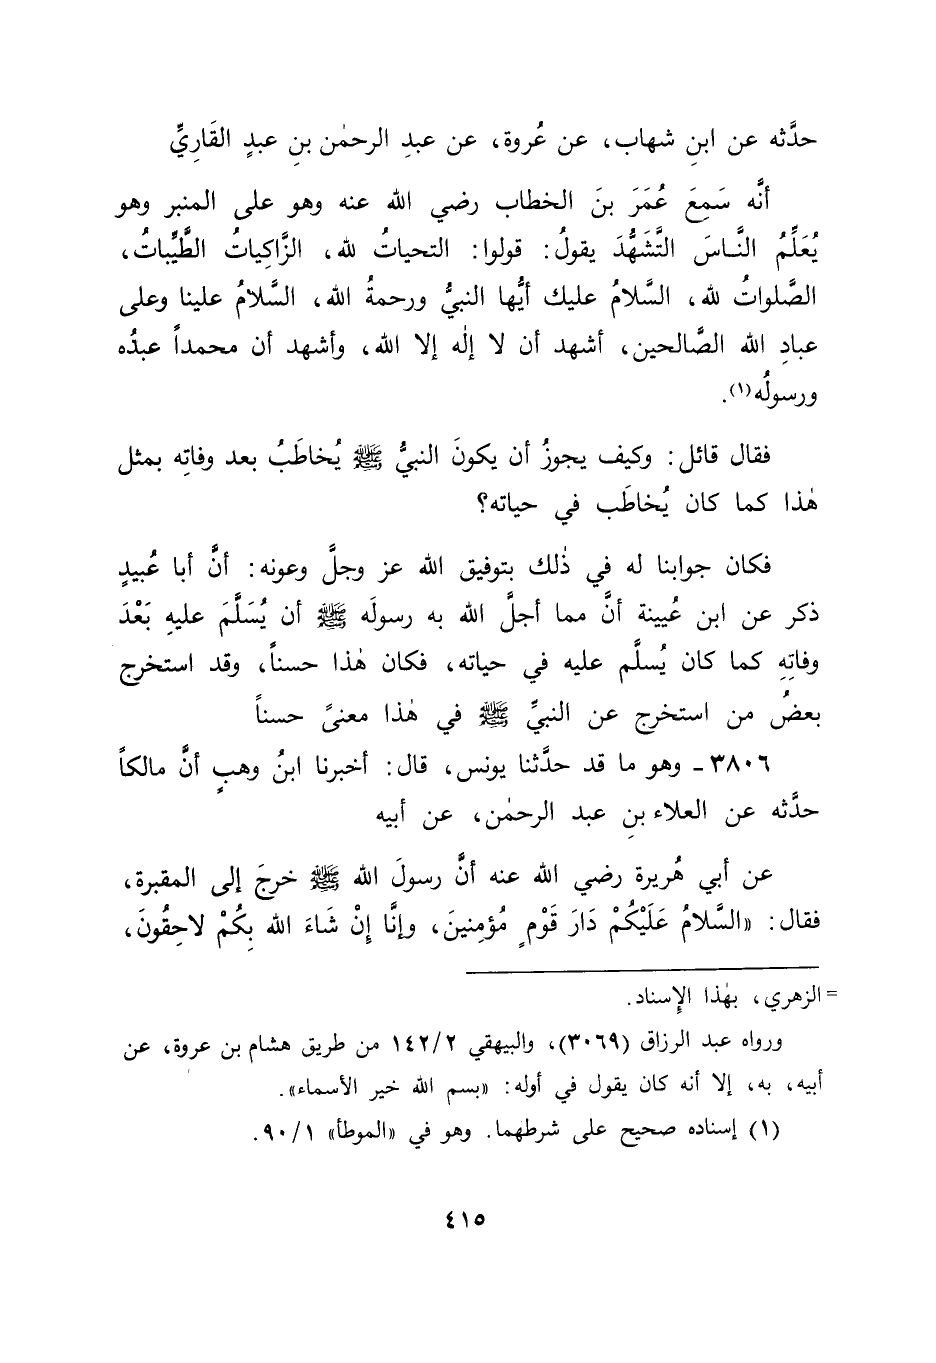 حدَّثه عن ابنِ شهاب، عن عُروة، عن عبدِ الرحمٰن بنِ عبدٍ القَارِيِّ
أنَّه سَمِعَ عُمَرَ بنَ الخطاب رضي الله عنه وهو على المنبر وهو
يُعَلِّمُ النَّاسَ التَّشَهُّدَ يقولُ: قولوا: التحياتُ لله، الزَّاكِياتُ الطَّيِّباتُ،
الصَّلواتُ لله، السَّلامُ عليك أيُّها النبيُّ ورحمةُ الله، السَّلامُ علينا وعلى
عبادِ الله الصَّالحين، أشهد أن لا إلٰه إلا الله، وأشهد أن محمداً عبدُه
ورسولُه(١).
فقال قائل: وكيف يجوزُ أن يكونَ النبيُّ ﷺ يُخاطَبُ بعد وفاتِه بمثل
هٰذا كما كان يُخاطَب في حياته؟
فكان جوابنا له في ذٰلك بتوفيق الله عز وجلَّ وعونه: أنَّ أبا عُبيدٍ
ذكر عن ابن عُيينة أنَّ مما أجلَّ الله به رسولَه ﷺ أن يُسَلَّمَ عليهِ بَعْدَ
وفاتِهِ كما كان يُسلَّم عليه في حياته، فكان هٰذا حسناً، وقد استخرج
بعضُ من استخرج عن النبيِّ ﷺ في هٰذا معنىً حسناً
٣٨٠٦ - وهو ما قد حدَّثنا يونس، قال: أخبرنا ابنُ وهبٍ أنَّ مالكاً
حدَّثه عن العلاء بنِ عبد الرحمٰن، عن أبيه
عن أبي هُريرة رضي الله عنه أنَّ رسولَ الله ﷺ خرجَ إلى المقبرة،
فقال: «السَّلامُ عَلَيْكُمْ دَارَ قَوْمٍ مُؤمِنينَ، وإنَّا إنْ شَاءَ الله بِكُمْ لاحِقُونَ،
= الزهري، بهٰذا الإِسناد.
ورواه عبد الرزاق (٣٠٦٩)، والبيهقي ١٤٢/٢ من طريق هشام بن عروة، عن
أبيه، به، إلا أنه كان يقول في أوله: «بسم الله خير الأسماء».
(١) إسناده صحيح على شرطهما. وهو في «الموطأ» ٩٠/١.
٤١٥